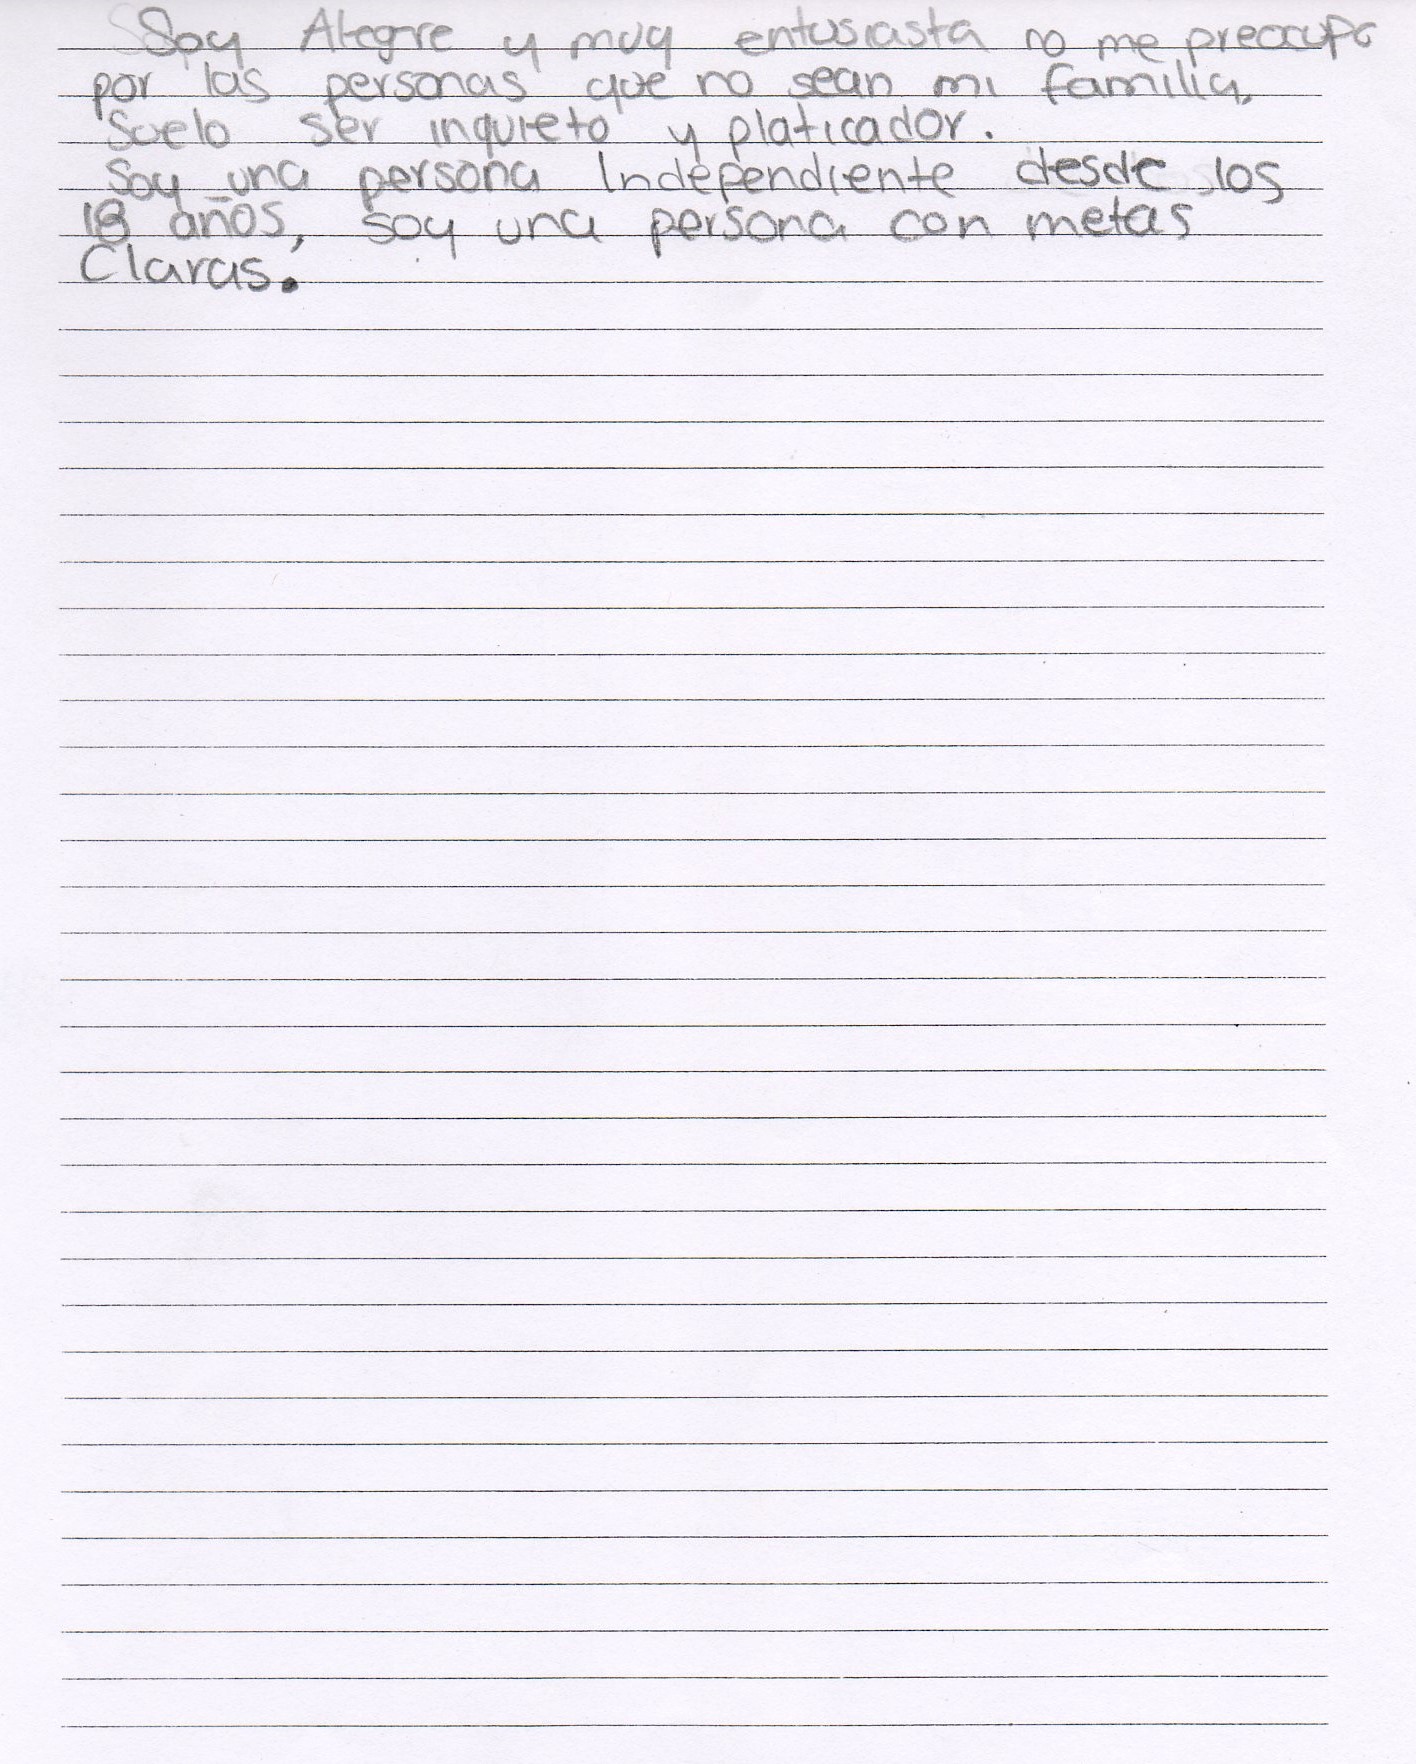 Soy Alegre y muy entusiasta no me preocupo
por las personas que no sean mi familia,
Suelo ser inquieto y platicador.
Soy una persona Independiente desde los
18 años, soy una persona con metas
Claras.